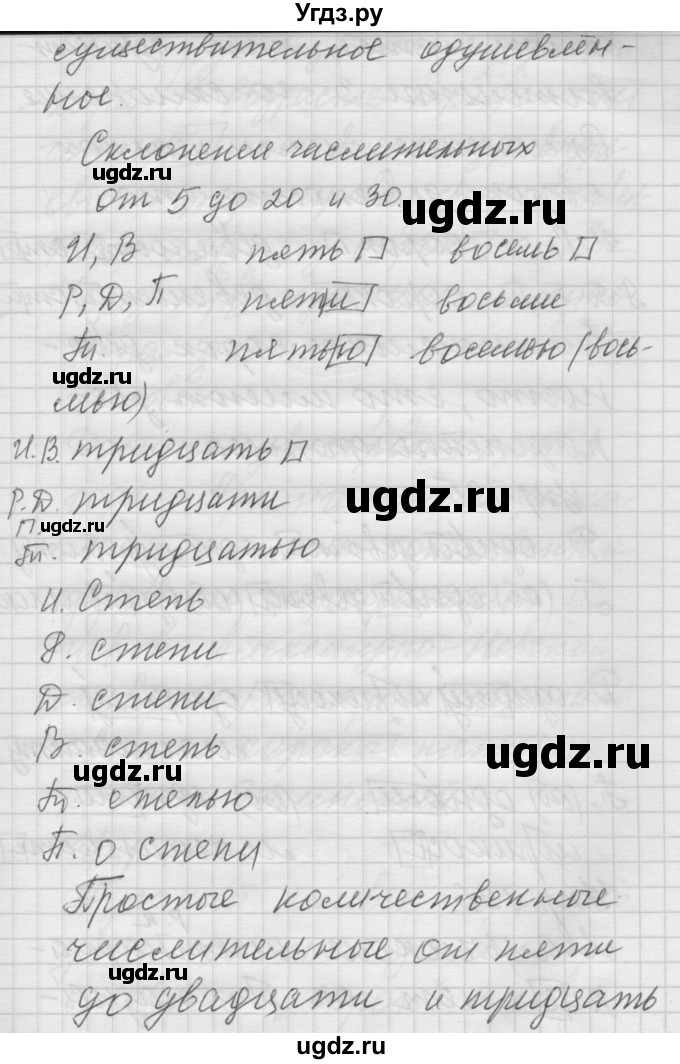 Угдз.ру
существительное одушевлён-
ное.
Склонении числительных
ugdz.ru
от 5 до 20 и 30.
ugdz.ru
И, В пять□ восемь□
Р, Д, П пят[и] восьми
Тп. пять[ю] восемью (вось-
ugdz.ru
мью)
И.В. тридцать□
Р.Д. тридцати
ugdz.ru
П.
ugdz.ru
Тп. тридцатью
И. Степь
Р. степи
Д. степи
В. степь
ugdz.ru
ugdz.ru
Тп. степью
П. о степи
Простые количественные
числительные от пяти
ugdz.ru
до двадцати и тридцать
ugdz.ru
ugdz.ru